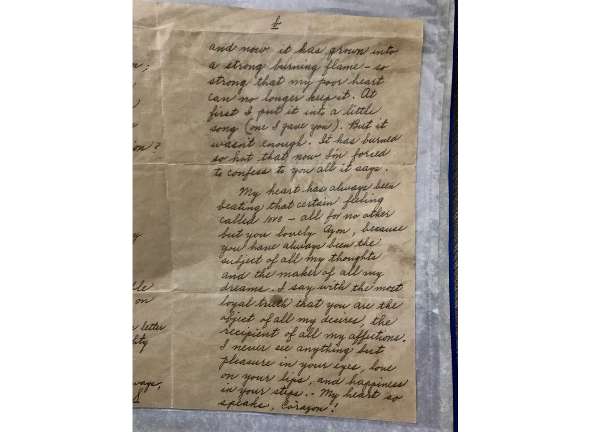 ;
n ?
y
le
on
letter
lity
ways,
and now it has grown into
a strong burning flame - so
strong that my poor heart
can no longer keep it. At
first I put it into a little
song (one I gave you). But it
wasn't enough. It has burned
so hot that now I'm forced
to confess to you all it says.
My heart has always been
beating that certain feeling
called love - all for no other
but you lovely Azon, because
you have always been the
subject of all my thoughts
and the maker of all my
dreams. I say with the most
loyal truth that you are the
object of all my desires, the
recipient of all my affections.
I never see anything but
pleasure in your eyes, love
on your lips, and happiness
in your steps. - My heart so
speaks, Corazon!